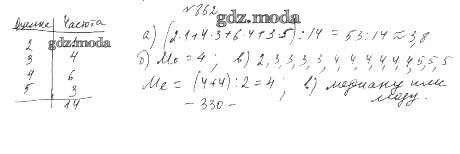 №862
gdz.moda
Оценка Частота
2 1
3 4
4 6
5 3
14
gdz.moda
а) (2·1+4·3+6·4+3·5):14=53:14≈3,8
б) Mo=4; в) 2,3,3,3,3,4,4,4,4,4,4,5,5,5
Me=(4+4):2=4; в) медиану или моду.
-330-